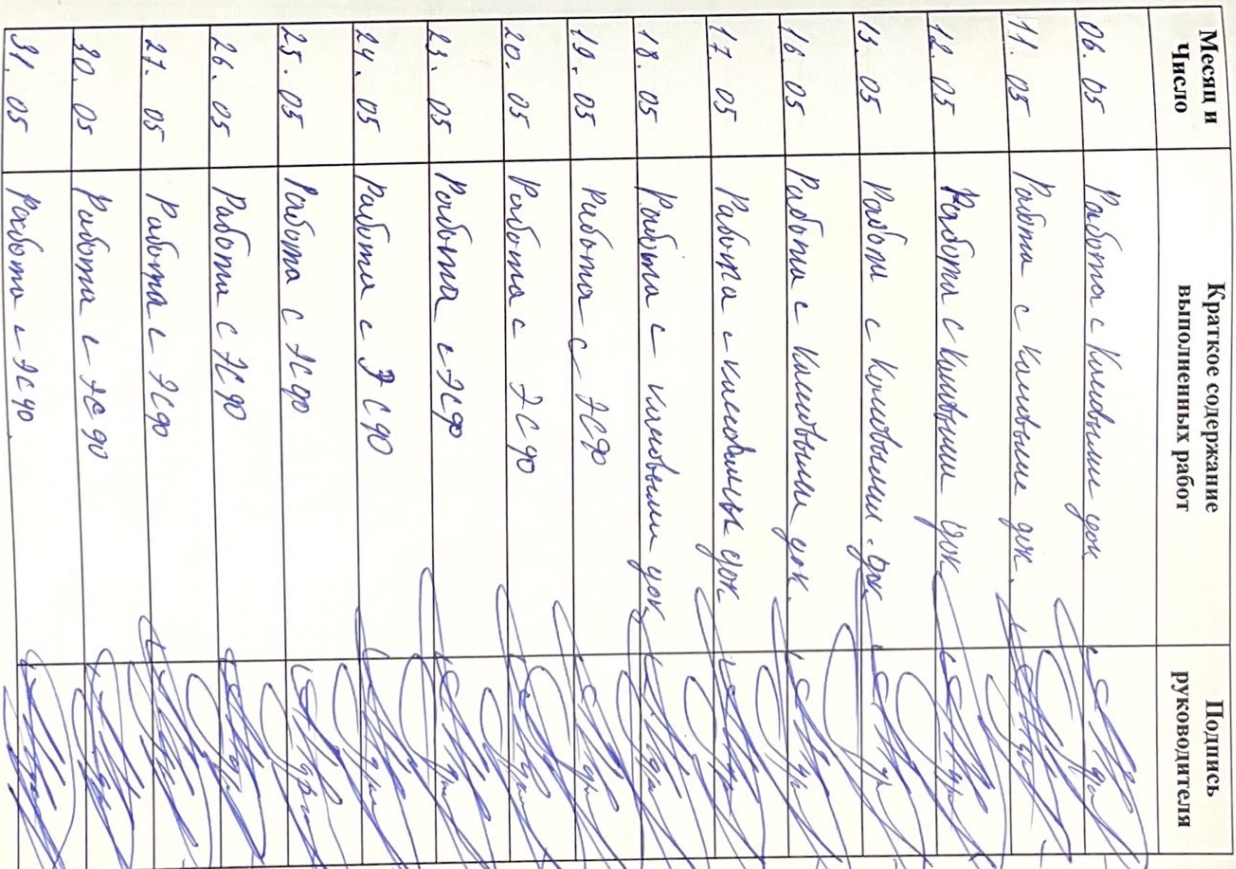 Месяц и
Число
Краткое содержание
выполненных работ
Подпись
руководителя
06. 05 Работа с кассовыми док
11. 05 Работа с кассовыми док.
12. 05 Работа с кассовыми док
13. 05 Работа с кассовыми док
16. 05 Работа с кассовыми док.
17. 05 Работа с кассовыми док
18. 05 Работа с кассовыми док
19. 05 Работа с ЭСФО
20. 05 Работа с ЭСФО
23. 05 Работа с ЭСФО
24. 05 Работа с ЭСФО
25. 05 Работа с ЭСФО
26. 05 Работа с ЭСФО
27. 05 Работа с ЭСФО
30. 05 Работа с ЭСФО
31. 05 Работа с ЭСФО.